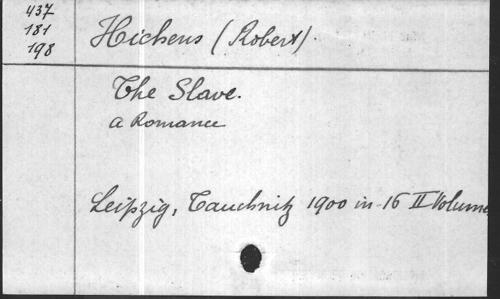 437
181
198
Hichens (Robert).
The Slave.
a Romance
Leipzig, Tauchnitz 1900 in-16 II Volume